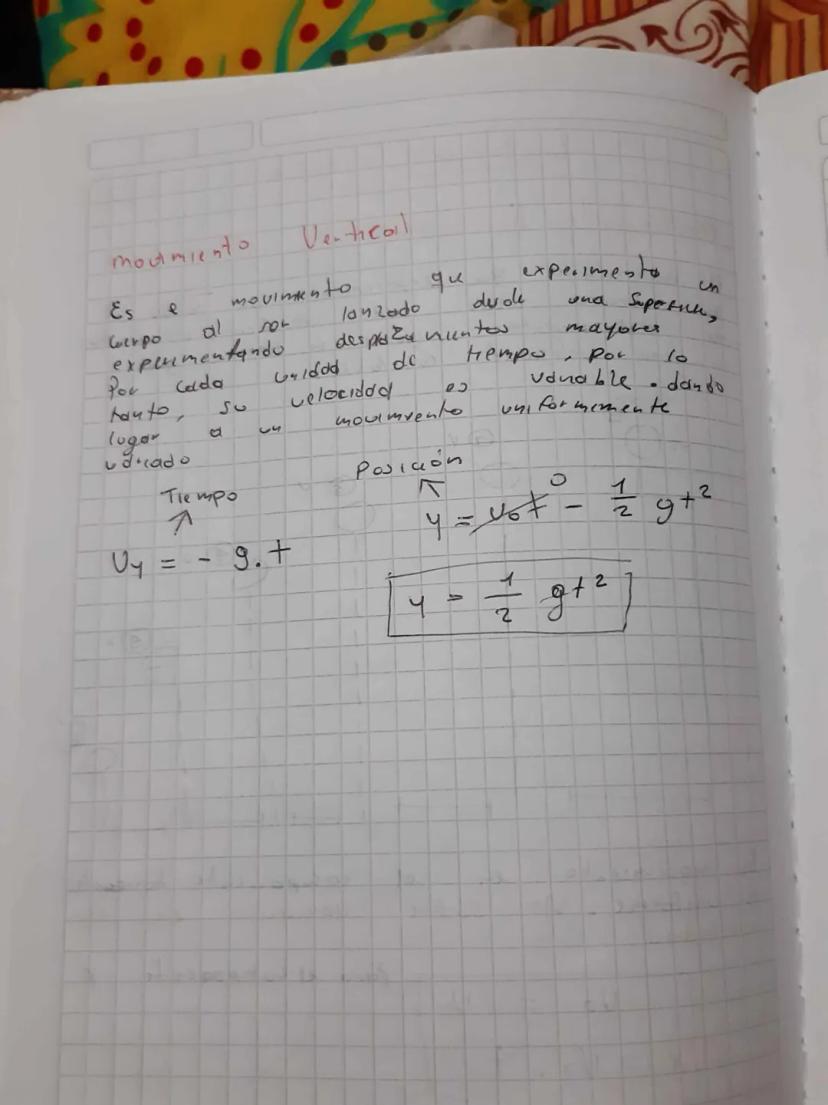 movimiento Vertical
Es e movimiento que experimento un
cuerpo al ser lanzado desde una superficie,
experimentando desplazamientos mayores
Por cada unidad de tiempo, por lo
tanto, su velocidad es variable. dando
lugar a un movimiento uniformemente
variado
Posición
Tiempo
y = v₀t⁰ - 1/2 gt²
Vy = - g.t
y = 1/2 gt²